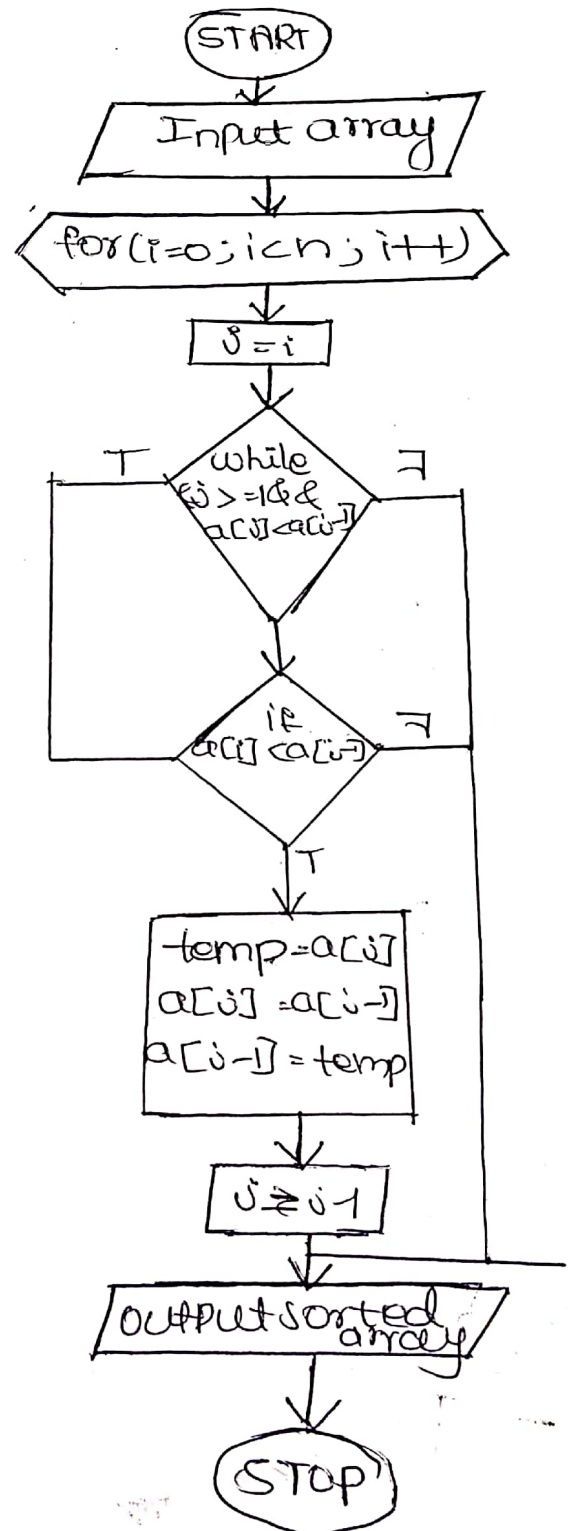 START
Input array
for(i=0; i<n; i++)
j=i
T
while
(j>=1&&
a[j]<a[j-1]
F
if
a[j]<a[j-1]
F
T
temp=a[j]
a[j]=a[j-1]
a[j-1]=temp
j=j-1
output sorted
array
STOP